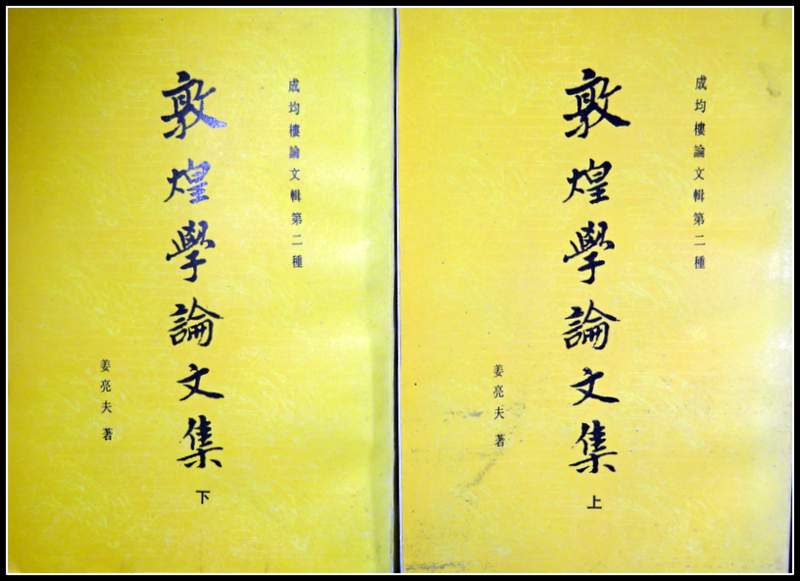 成均樓論文輯第二種
敦煌學論文集
下
姜亮夫 著
成均樓論文輯第二種
敦煌學論文集
上
姜亮夫 著